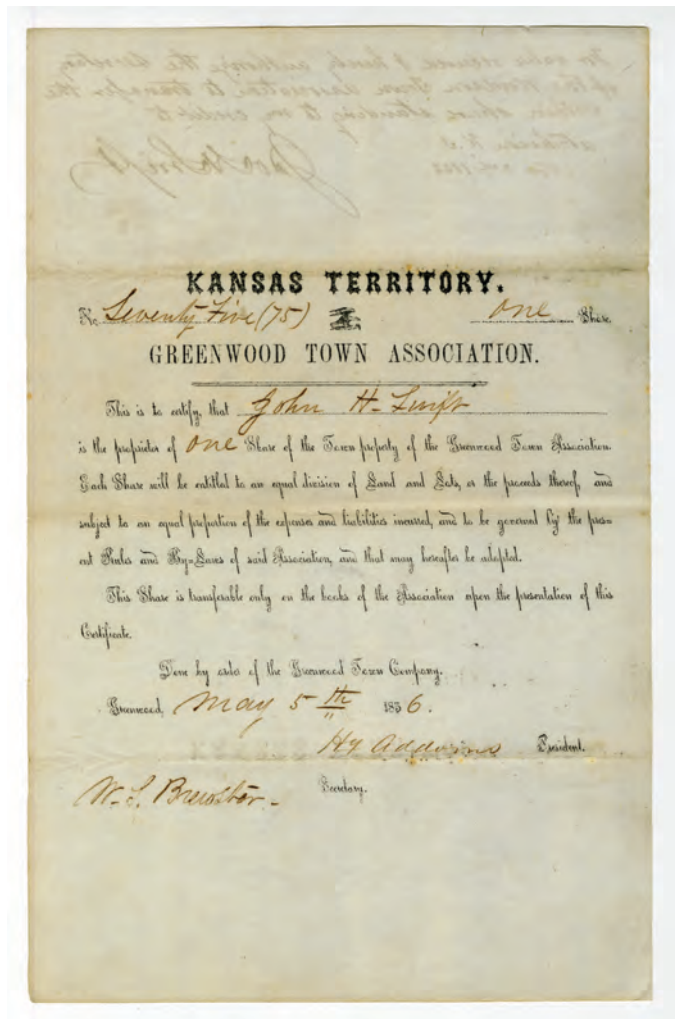 KANSAS TERRITORY.
No. Seventy Five (75) one Share.
GREENWOOD TOWN ASSOCIATION.
This is to certify, that John H. Swift
is the proprietor of one Share of the Town property of the Greenwood Town Association.
Each Share will be entitled to an equal division of Land and Lots, or the proceeds thereof, and
subject to an equal proportion of the expenses and liabilities incurred, and to be governed by the pres-
ent Rules and By=Laws of said Association, and that may hereafter be adopted.
This Share is transferable only on the books of the Association upon the presentation of this
Certificate.
Done by order of the Greenwood Town Company.
Greenwood, May 5th 1856.
Hy Addoms President.
W. S. Brewster. Secretary.